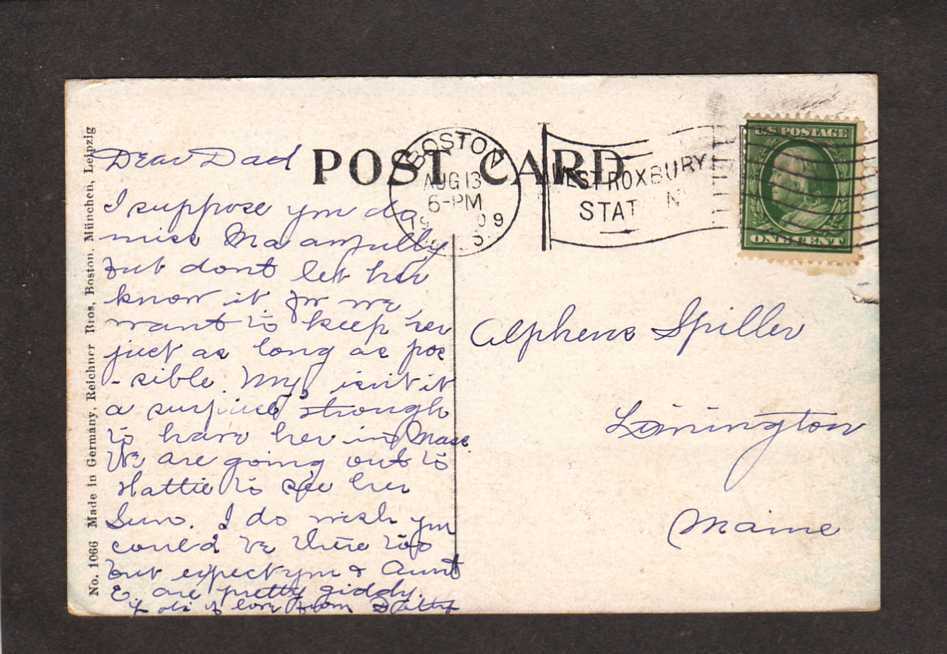 No. 1066 Made in Germany, Reichner Bros, Boston, München, Leipzig
POST CARD
BOSTON
AUG 13
6-PM
1909
WEST ROXBURY
STATION
U.S. POSTAGE
ONE CENT
Dear Dad
I suppose you do
miss Ma awfully
but dont let her
know it for we
want to keep her
just as long as pos
-sible. My isn't it
a surprise though
to have her in Mass.
We are going out to
Hattie to see her
Sun. I do wish you
could be there too
but expect you & Aunt
E. are pretty giddy.
lots of love from
Alpheus Spiller
Limington
Maine